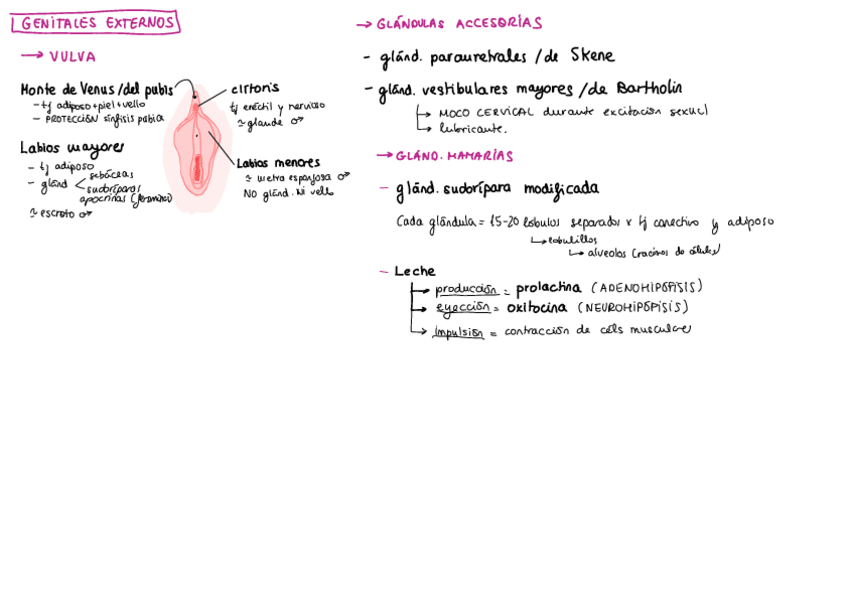 GENITALES EXTERNOS
→ VULVA
Monte de Venus/del pubis
- tj adiposo+piel+vello
- PROTECCIÓN sínfisis pubica
Labios mayores
- tj adiposo
- gland < sebáceas
sudoríparas
apocrinas (feromonas)
≃ escroto ♂
clítoris
tj eréctil y nervioso
≃ glande ♂
Labios menores
≃ uretra esponjosa ♂
NO glánd. ni vello
→ GLÁNDULAS ACCESORIAS
- glánd. parauretrales /de Skene
- glánd. vestibulares mayores /de Bartholin
↳ MOCO CERVICAL durante excitación sexual
↳ lubricante.
→ GLÁND. MAMARIAS
- glánd. sudorípara modificada
Cada glándula = 15-20 lóbulos separados x tj conectivo y adiposo
↳ lobulillos
↳ alveolos (racimos de células)
- Leche
→ producción = prolactina (ADENOHIPÓFISIS)
→ eyección = oxitocina (NEUROHIPÓFISIS)
→ impulsión = contracción de cels musculares